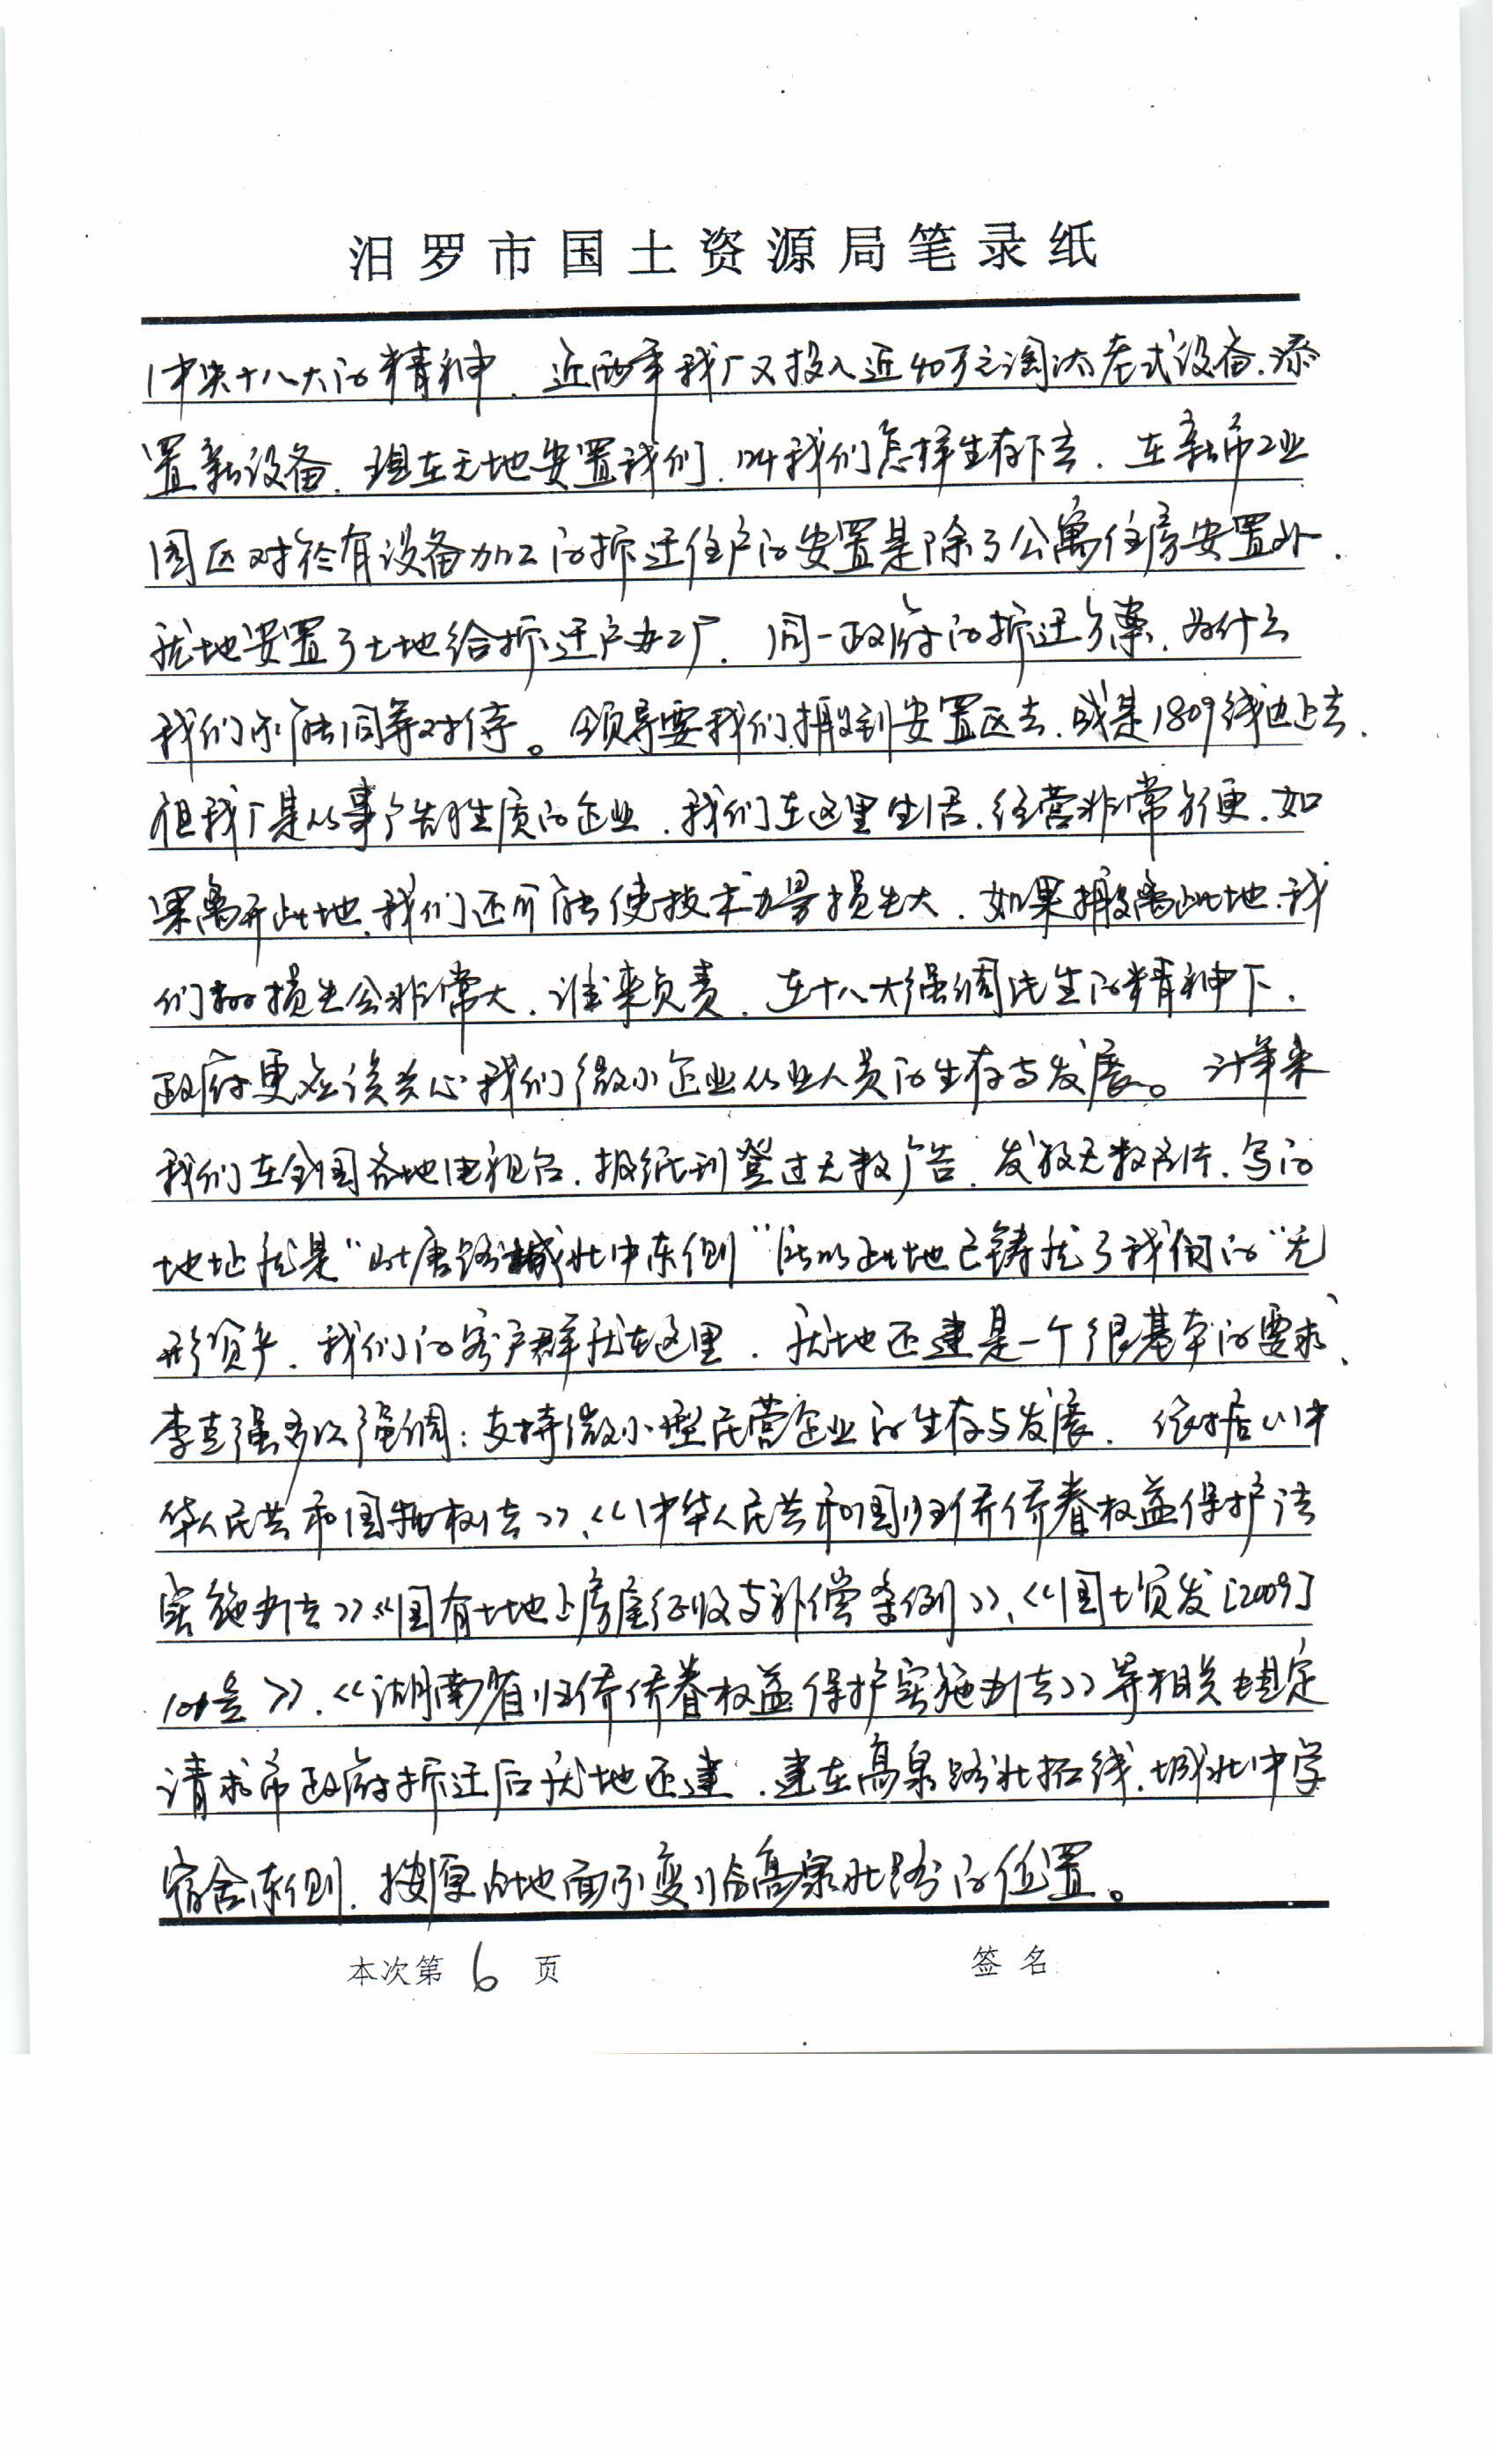 汨罗市国土资源局笔录纸
中央十八大的精神、近两年我厂又投入近40万元淘汰老式设备、添
置新设备、现在无地安置我们、叫我们怎样生存下去、在新市工业
园区对于有设备加工的拆迁住户的安置是除了公寓住房安置外、
就地安置了土地给拆迁户办工厂、同一政府的拆迁方案、为什么
我们不能同等对待。领导要我们搬到安置区去、或是1809线边上去、
但我厂是从事广告性质的企业、我们在这里生活、经营非常方便、如
果离开此地、我们还可能使技术力量损失大、如果搬离此地、我
们的损失会非常大、谁来负责、在十八大强调民生的精神下、
政府更应该关心我们微小企业从业人员的生存与发展。廿年来
我们在全国各地电视台、报纸刊登过无数广告、发放无数名片、写的
地址就是“ 唐路城北中东侧”所以此地已铸就了我们的“无
形资产、我们的客户群就在这里、就地还建是一个很基本的要求、
李克强多次强调:支持微小型民营企业的生存与发展、依据《中
华人民共和国物权法》、《中华人民共和国归侨侨眷权益保护法
实施办法》《国有土地上房屋征收与补偿条例》、《国土资发[2009]
号》、《湖南省归侨侨眷权益保护实施办法》等相关规定
请求市政府拆迁后就地还建、建在高泉路北拓线、城北中学
宿舍东侧、按原占地面积不变临高泉北路的位置。
本次第6页 签名